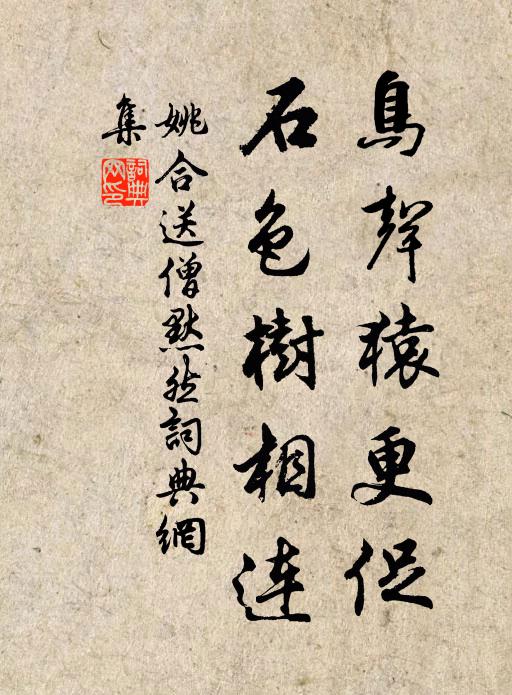 鳥聲猿更促
石色樹相連
姚合送僧默然詞典網
集
詞典網印